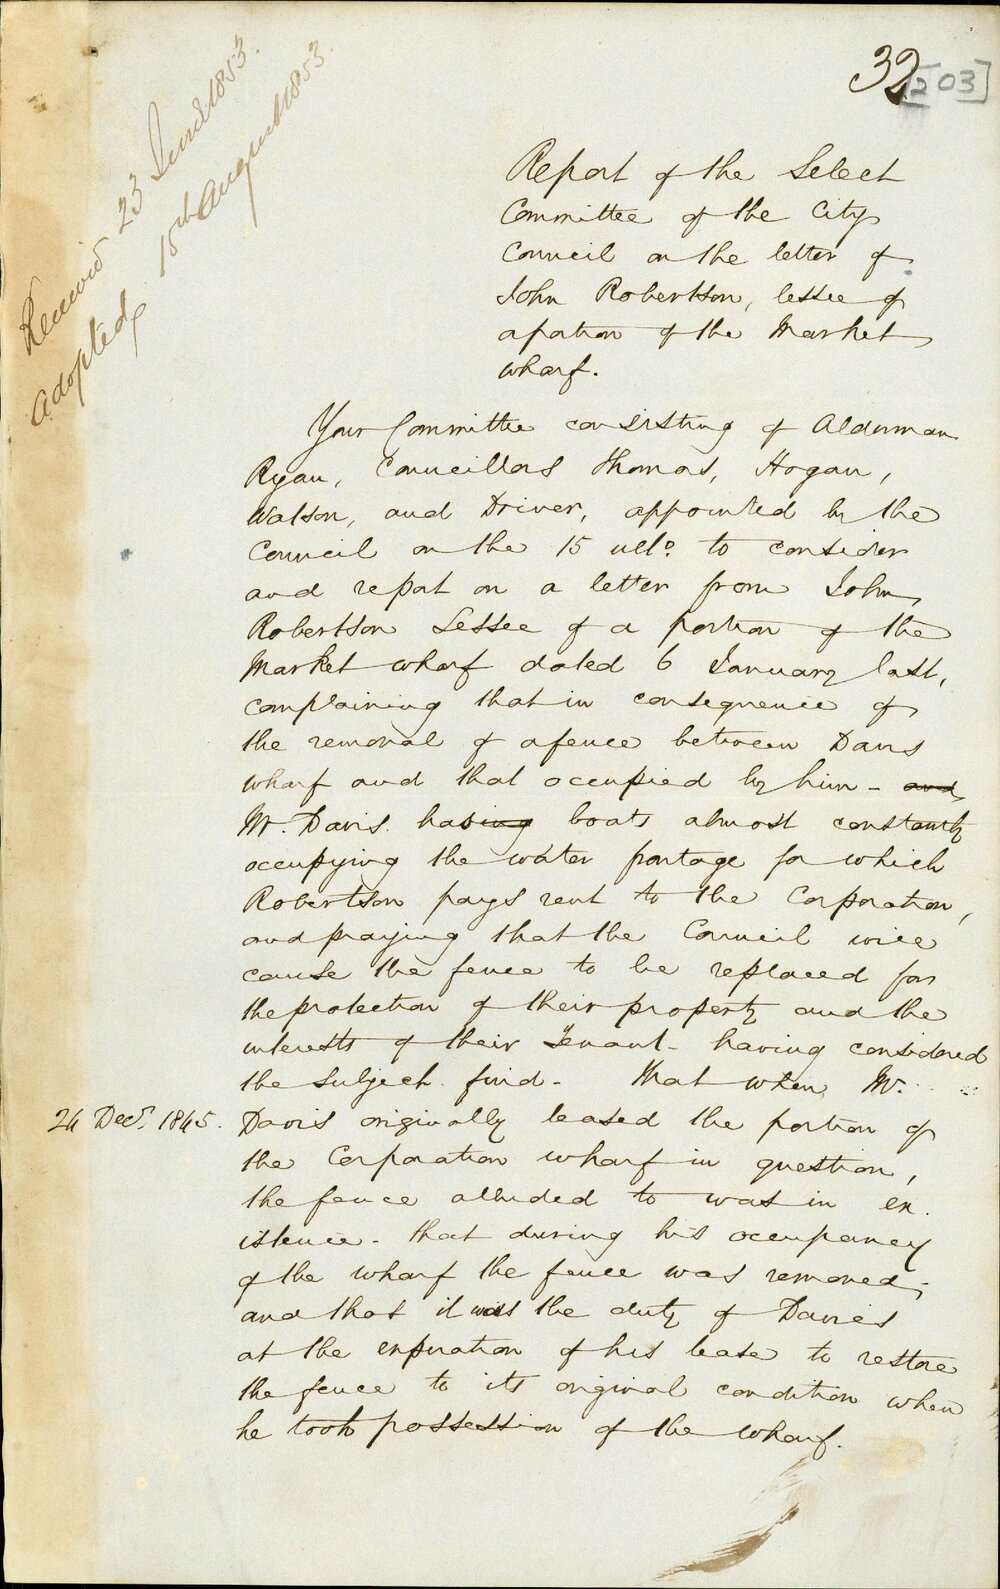 Received 23 June 1853.
Adopted 15th August 1853.
32
[203]
Report of the Select
Committee of the City
Council on the letter of
John Robertson, lessee of
a portion of the Market
Wharf.
Your Committee consisting of Alderman
Ryan, Councillors Thomas, Hogan,
Watson, and Driver, appointed by the
Council on the 15 ulto. to consider
and report on a letter from John
Robertson Lessee of a portion of the
Market wharf dated 6 January last,
complaining that in consequence of
the removal of a fence between Davis
wharf and that occupied by him - and
Mr. Davis having boats almost constantly
occupying the water frontage for which
Robertson pays rent to the Corporation,
and praying that the Council will
cause the fence to be replaced for
the protection of their property and the
interests of their Tenant - having considered
the subject find - That when Mr.
24 Decr. 1845. Davis originally leased the portion of
the Corporation wharf in question,
the fence alluded to was in ex.
istence - that during his occupancy
of the wharf the fence was removed,
and that it was the duty of Davies
at the expiration of his lease to restore
the fence to its original condition when
he took possession of the wharf.